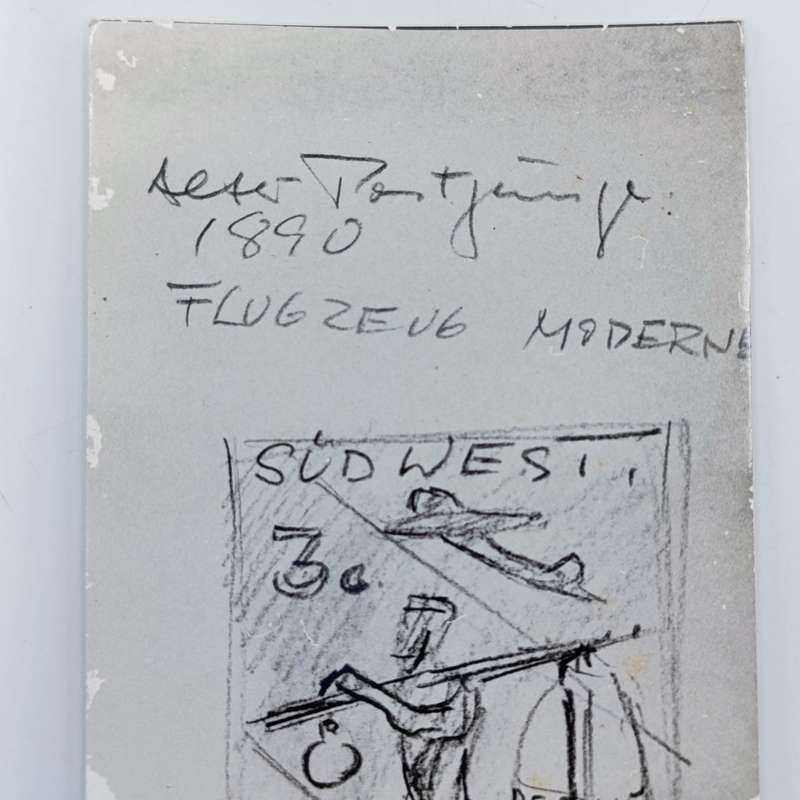 alter Postjunge
1890
FLUGZEUG MODERNE
SÜDWEST
3c.